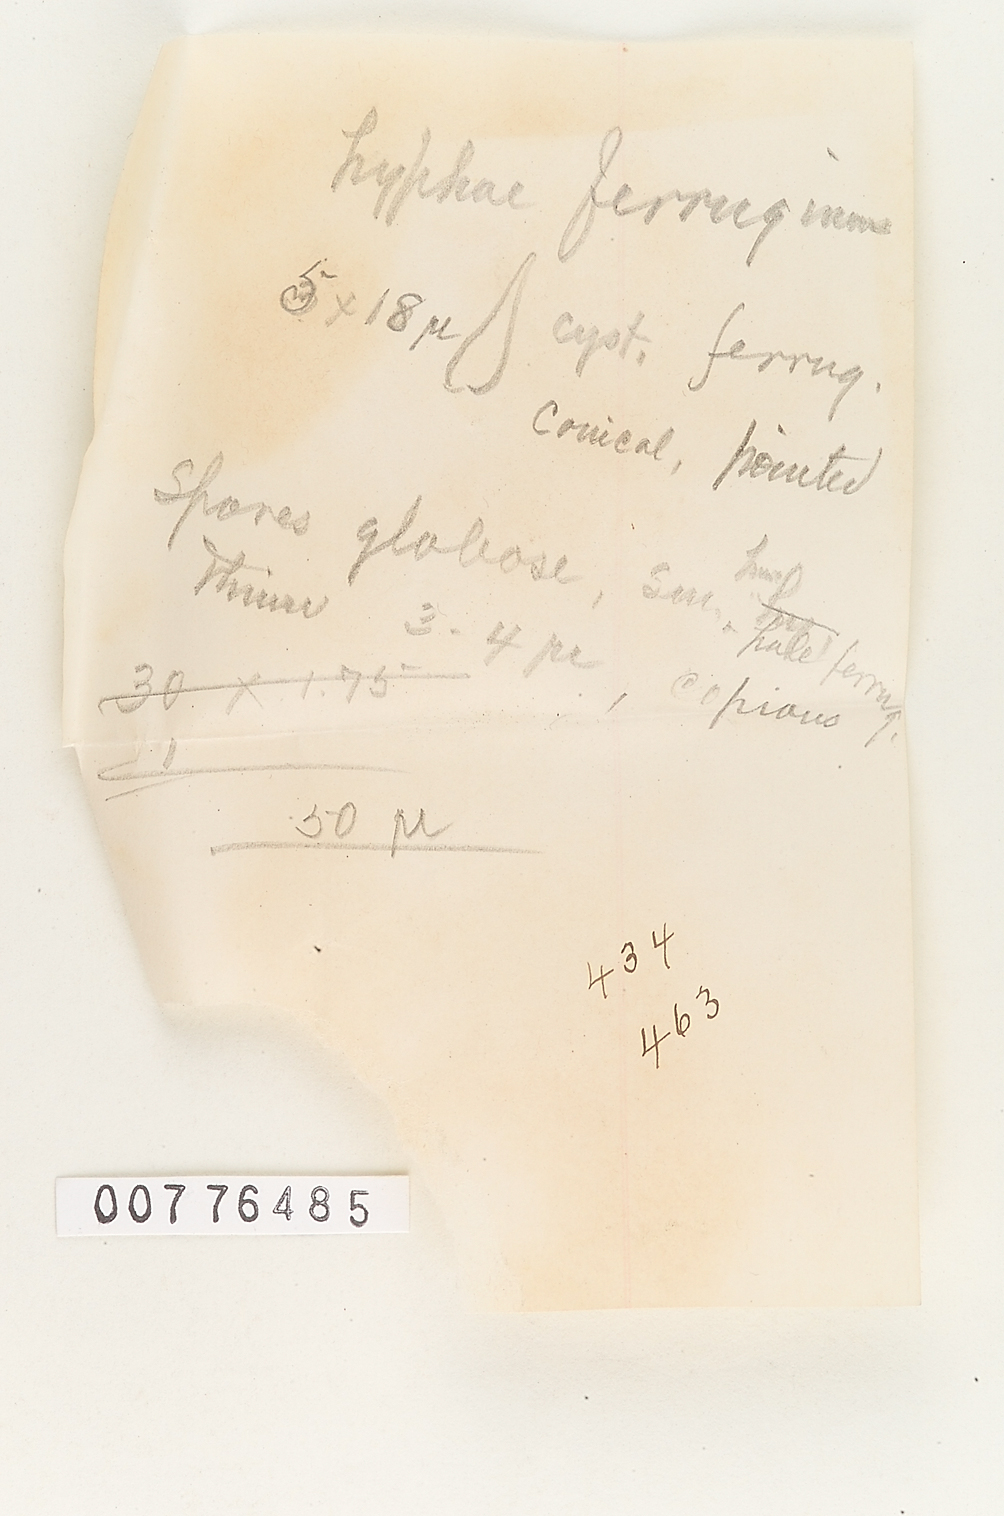 hyphae ferruginous
5 x 18 µ cyst. ferrug.
conical, pointed
Spores globose, sm.,
pale ferrug.
3-4 µ, copious
30 x 1.75
50 µ
434
463
00776485